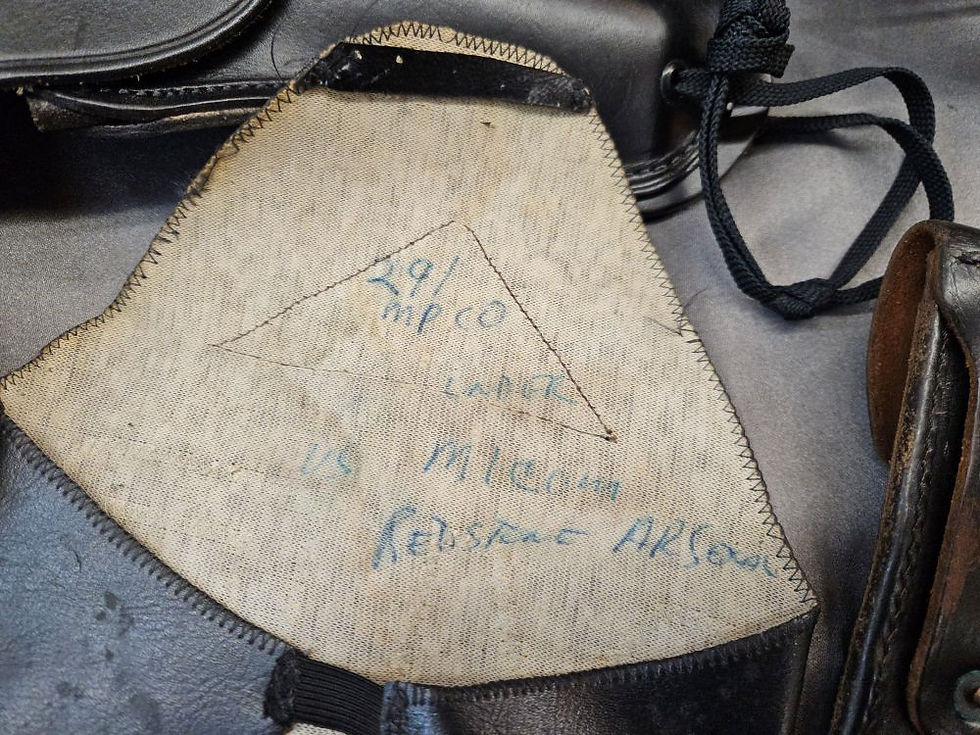 291
MP CO
UNDER
US MICOM
REDSTONE ARSENAL